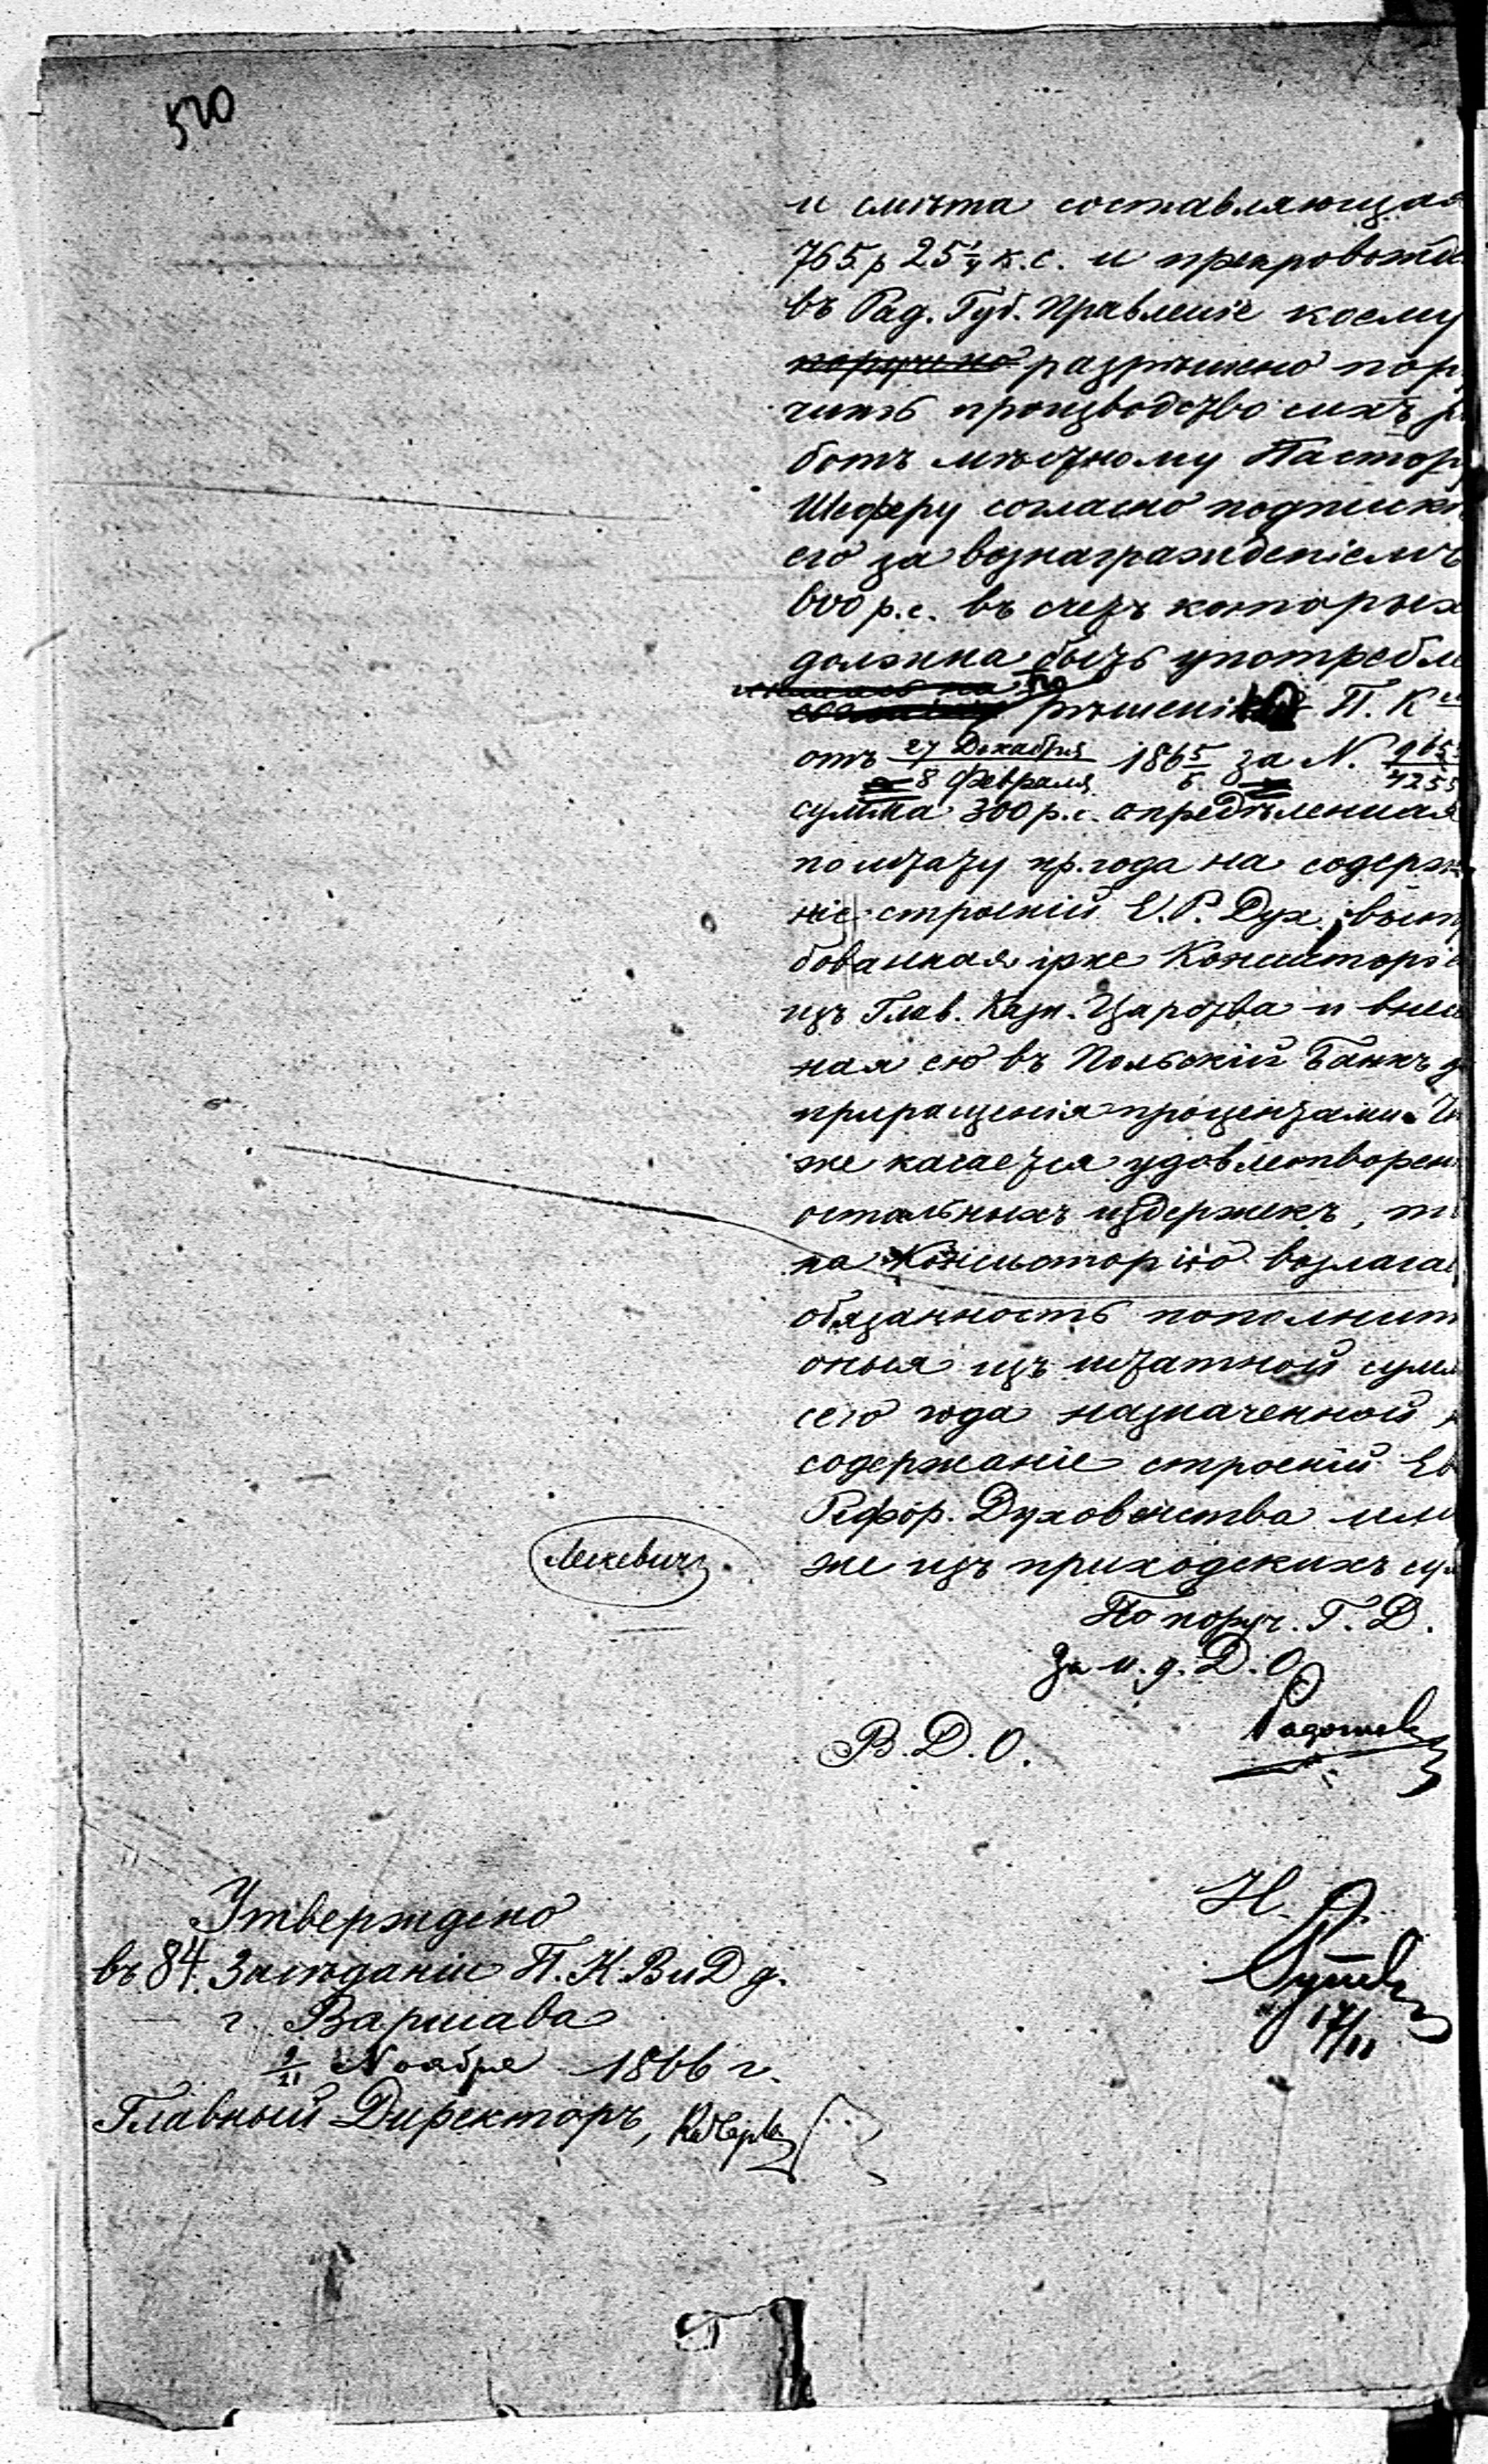 520
и смѣта составляющая
765 р 25 1/4 к.с. и препровожде
въ Рад. Губ. Правленіе коему
поручено разрѣшено пору
чить производство сихъ ра
ботъ мѣстному Пастору
Шеферу согласно подписки
его за вознагражденіемъ
600 р.с. въ счетъ которыхъ
должна быть употребле
по
рѣшенію П. К
отъ 27 Декабря / 8 Февраля 1865/6 за N. 9655 / 4255
сумма 300 р.с. опредѣленная
по штату пр. года на содержа
ніе строеній Е.Р. Дух.
бованная Консисторіе
изъ Глав. Казн. Царства и внесе
ная ею въ Польскій Банкъ д
приращенія процентами. Чт
же касается удовлетворен
остальныхъ издержекъ, то
на Консисторію возлагае
обязанность пополнить
оныя изъ штатной сумм
сего года назначенной н
содержаніе строеній Ев
Рефор. Духовенства или
же изъ приходскихъ сум
По поруч. Г. Д.
За и. д. Д. О.
В. Д. О.
Н. О.
17/11
Утверждено
въ 84. Засѣданіи П. К. В и Д д.
г. Варшава
9/21 Ноября 1866 г.
Главный Директоръ,